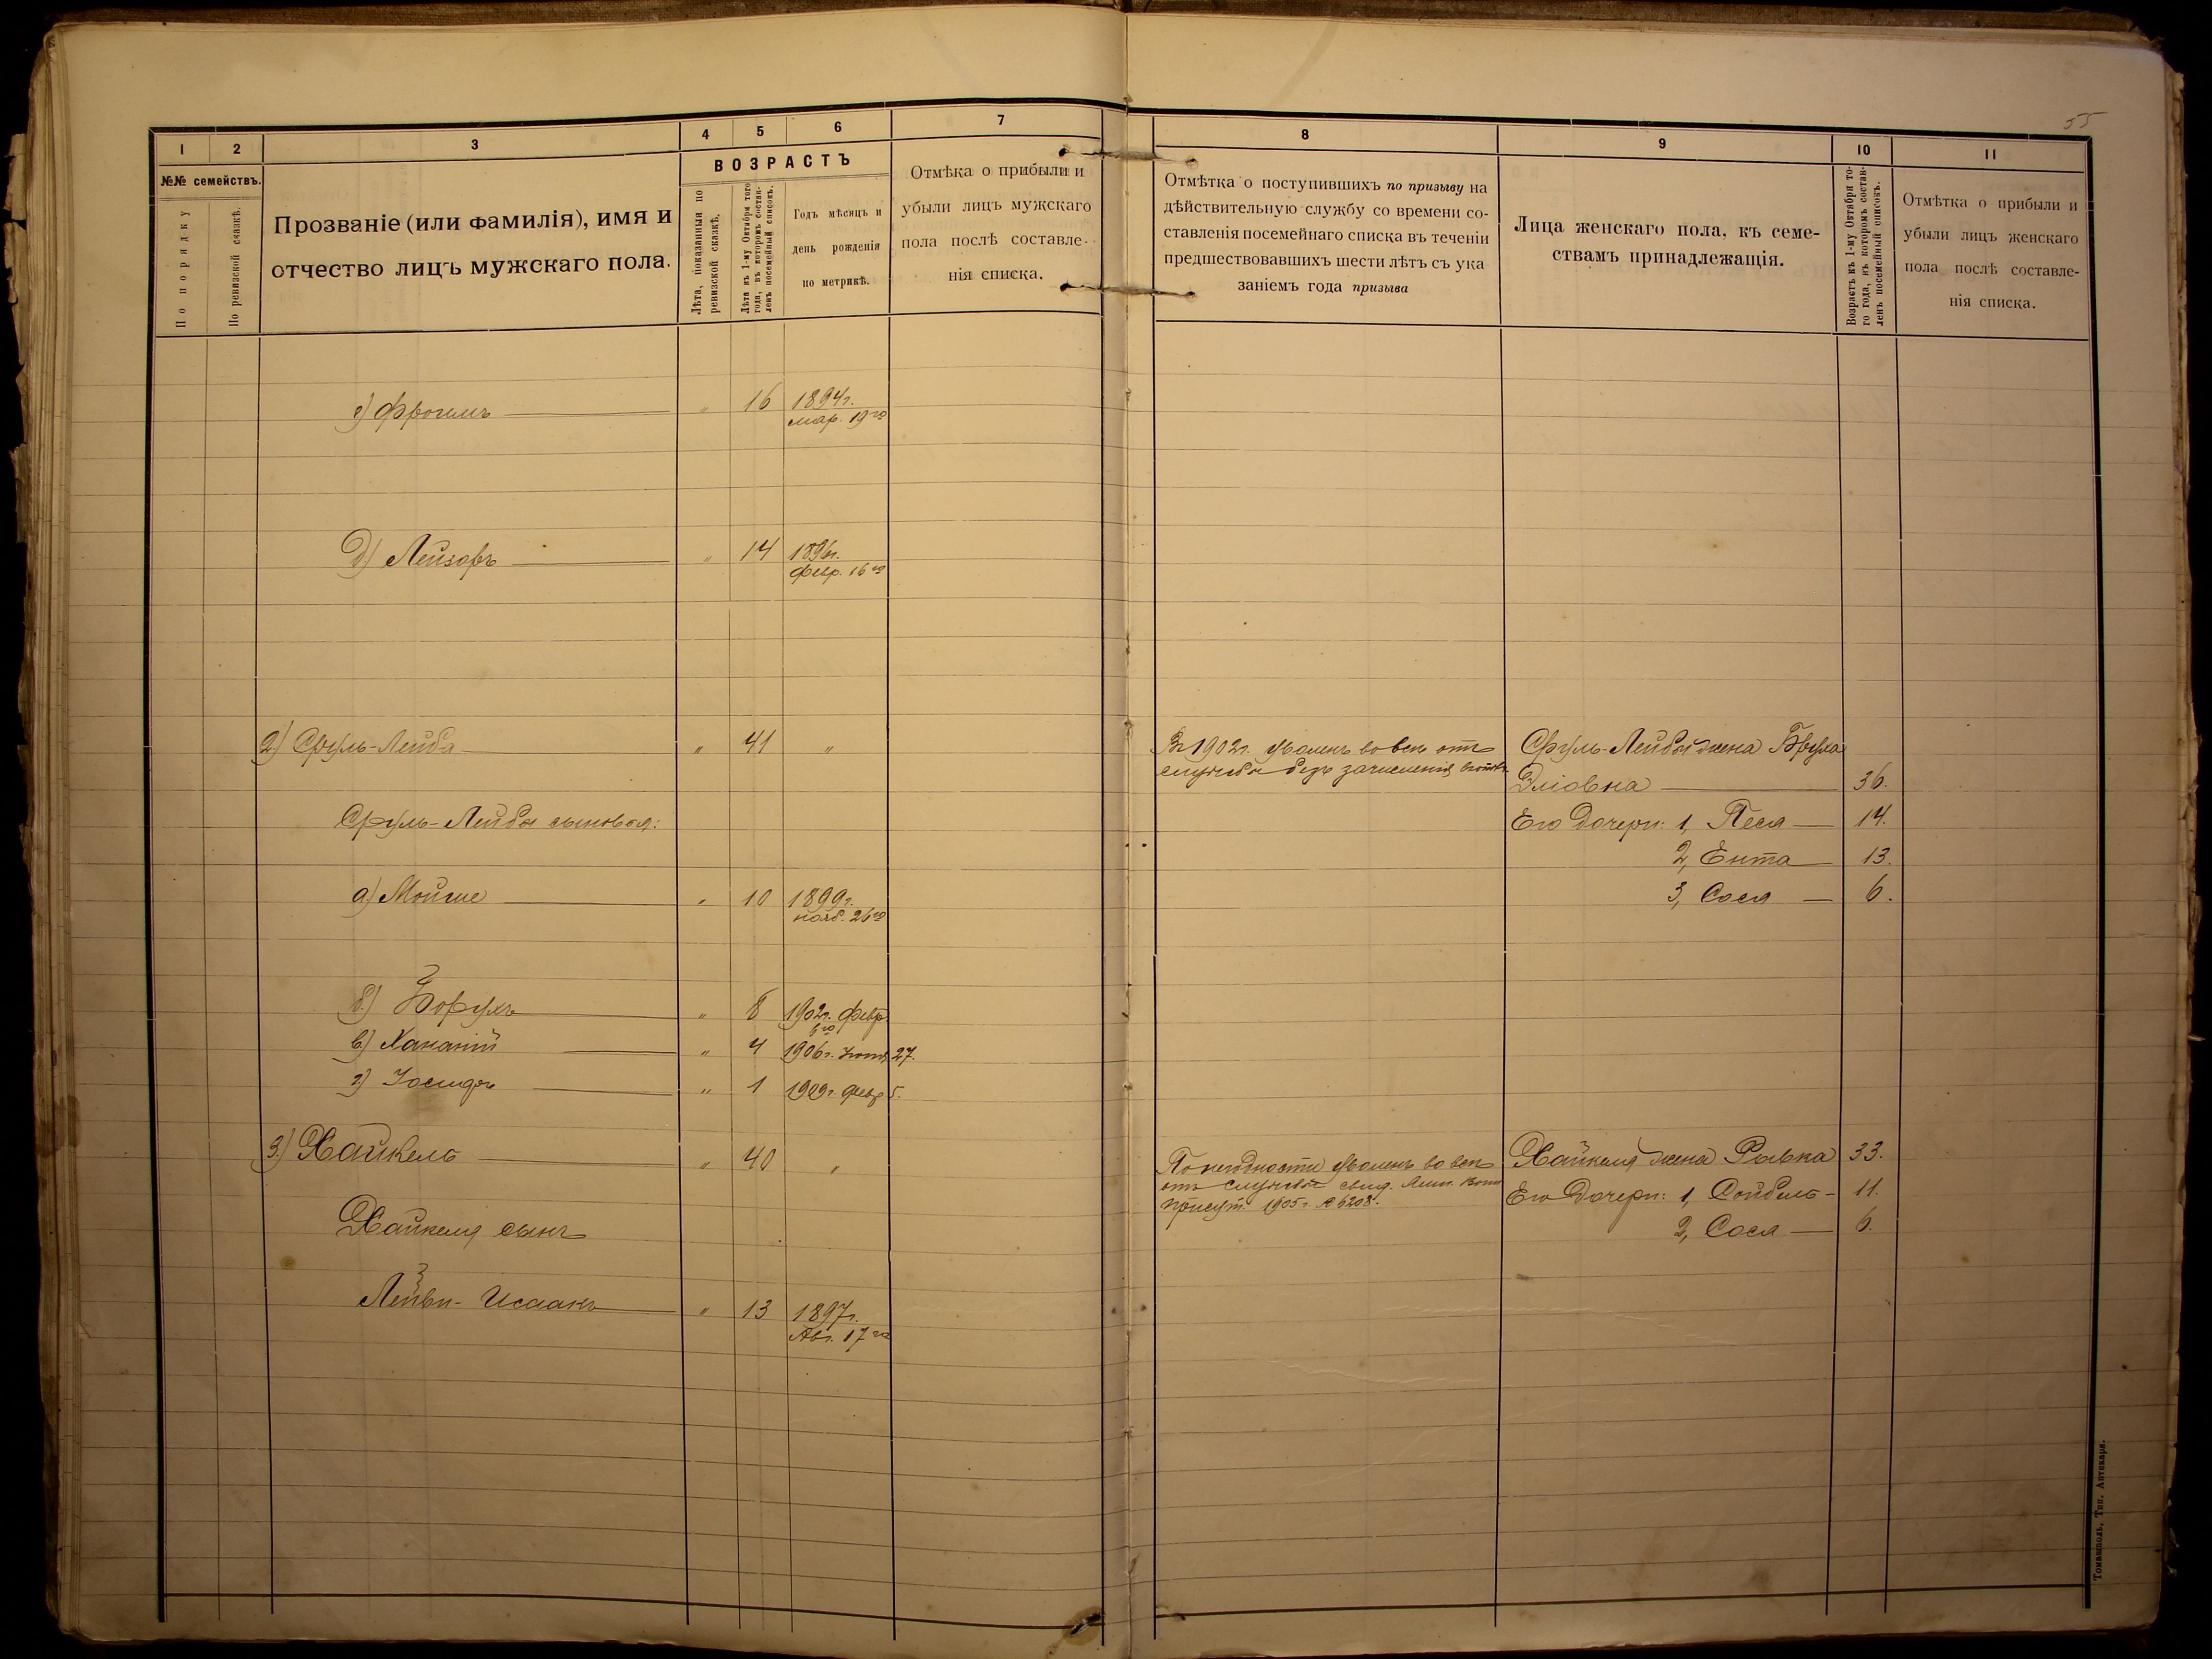 55
1 2 3 4 5 6 7
№№ семействъ.
По порядку
По ревизской сказкѣ.
Прозваніе (или фамилія), имя и
отчество лицъ мужскаго пола.
ВОЗРАСТЪ
Лѣта, показанныя по
ревизской сказкѣ.
Лѣта къ 1-му Октября того
года, въ которомъ состав-
ленъ посемейный списокъ.
Годъ мѣсяцъ и
день рожденія
по метрикѣ.
Отмѣка о прибыли и
убыли лицъ мужскаго
пола послѣ составле-
нія списка.
г) Фроимъ — „ 16 1894г.
мар. 19го
д) Лейзоръ — „ 14 1896г.
Февр. 16го
2) Сруль-Лейба — „ 41 „
Сруль-Лейбы сыновья:
а) Мойше — „ 10 1899г.
нояб. 26го
б) Борухъ — „ 8 1902г. Февр.
6го
в) Хананій — „ 4 1906г. 27.
г) Іосифъ — „ 1 1909г. Февр 5.
3.) Хайкель — „ 40 „
Хайкеля сынъ
Лейви-Исаакъ — „ 13 1897г.
Авг. 17го
8 9 10 11
Отмѣтка о поступившихъ по призыву на
дѣйствительную службу со времени со-
ставленія посемейнаго списка въ теченіи
предшествовавшихъ шести лѣтъ съ ука
заніемъ года призыва
Лица женскаго пола, къ семе-
ствамъ принадлежащія.
Возрастъ къ 1-му Октября то-
го года, въ которомъ состав-
ленъ посемейный списокъ.
Отмѣтка о прибыли и
убыли лицъ женскаго
пола послѣ составле-
нія списка.
Въ 1902г. уволенъ вовсе отъ
службы безъ зачисленія
Сруль-Лейбы жена Брука
Эліовна — 36.
Его дочери: 1, Песя — 14.
2, Ента — 13.
3, Сося — 6.
По негодности уволенъ вовсе
отъ службы свид.
Присут. 1905г. № 6208.
Хайкеля жена Рывка 33.
Его дочери: 1, Сойбель — 11.
2, Сося — 6.
Томашполь, Тип. Аптекаря.